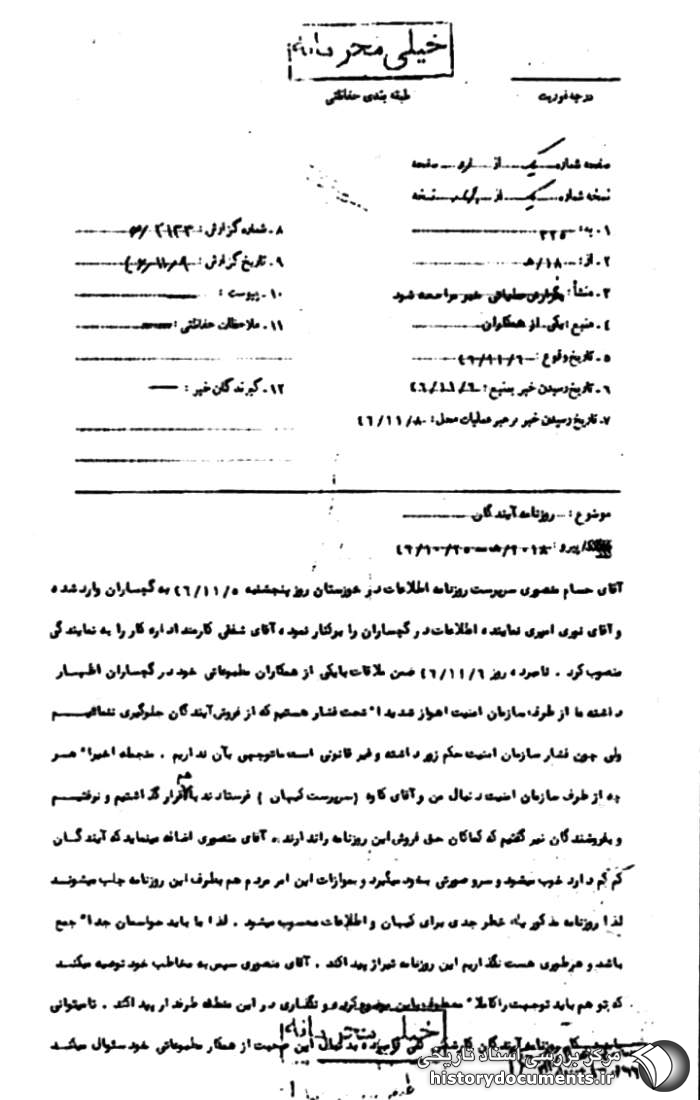 خیلی محرمانه
درجه فوریت
طبقه بندی حفاظتی
صفحه شماره یک از صفحه
نسخه شماره یک از نسخه
۱ـ به: ۳۲۵
۲ـ از: ۱۸/ه
۳ـ منشأ: خبر مراجعه شود
۴ـ منبع: یکی از همکاران
۵ـ تاریخ وقوع: ۴۶/۱۱/۶
۶ـ تاریخ رسیدن خبر بمنبع: ۴۶/۱۱/۶
۷ـ تاریخ رسیدن خبر برهبر عملیات محل: ۴۶/۱۱/۸
۸ـ شماره گزارش:
۹ـ تاریخ گزارش:
۱۰ـ پیوست:
۱۱ـ ملاحظات حفاظتی:
۱۲ـ گیرندگان خبر:
موضوع: روزنامه آیندگان
پیرو:
آقای حسام منصوری سرپرست روزنامه اطلاعات در خوزستان روز پنجشنبه ۴۶/۱۱/۵ به گچساران وارد شده
و آقای نوری امیری نماینده اطلاعات در گچساران را برکنار نموده آقای شفقی کارمند اداره کار را به نمایندگی
منصوب کرد . نامبرده روز ۴۶/۱۱/۶ ضمن ملاقات با یکی از همکاران مطبوعاتی خود در گچساران اظهار
داشته ما از طرف سازمان امنیت اهواز شدیدا" تحت فشار هستیم که از فروش آیندگان جلوگیری ننمائیم
ولی چون فشار سازمان امنیت حکم زور داشته و غیر قانونی است ما توجهی بآن نداریم . منجمله اخیرا" هر
چه از طرف سازمان امنیت دنبال من و آقای کاوه (سرپرست کیهان ) فرستادند با هم قرار گذاشتیم و نرفتیم
و بفروشندگان نیز گفتیم که کماکان حق فروش این روزنامه را ندارند . آقای منصوری اضافه مینماید که آیندگان
کم کم دارد خوب میشود و سر و صورتی بخود میگیرد و بموازات این امر مردم هم بطرف این روزنامه جلب میشوند
لذا روزنامه مذکور یک خطر جدی برای کیهان و اطلاعات محسوب میشود . لذا ما باید حواسمان جدا" جمع
باشد و هرطوری هست نگذاریم این روزنامه تیراژ پیدا کند . آقای منصوری سپس به مخاطب خود توصیه میکند
که تو هم باید توجهت را کاملا" معطوف باین موضوع کرده و نگذاری در این منطقه طرفدار پیدا کند . تا میتوانی
روزنامه آیندگان بدنبال این صحبت از همکار مطبوعاتی خود سئوال میکند
خیلی محرمانه
مرکز بررسی اسناد تاریخی
historydocuments.ir